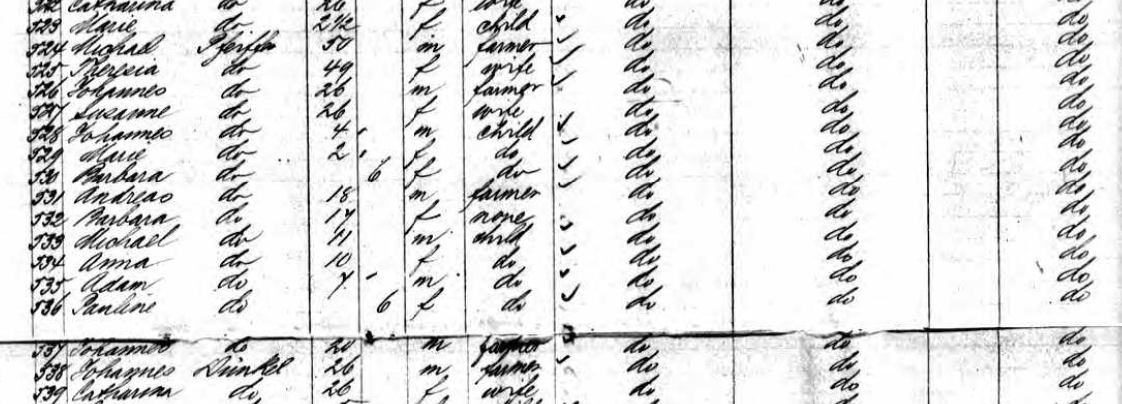 522 Catharina do 26 f wife do do do
523 Marie do f child do do do
524 Michael Pfeiffer 50 m farmer do do do
525 Theresia do 49 f wife do do do
526 Johannes do 26 m farmer do do do
527 Susanne do 26 f wife do do do
528 Johannes do 4 m child do do do
529 Marie do 2 f do do do do
530 Barbara do 6 f do do do do
531 Andreas do 18 m farmer do do do
532 Barbara do 17 f none do do do
533 Michael do 11 m child do do do
534 Anna do 10 f do do do do
535 Adam do 7 m do do do do
536 Pauline do 6 f do do do do
537 Johannes do 20 m farmer do do do
538 Johannes Dunkel 26 m farmer do do do
539 Catharina do 26 f wife do do do